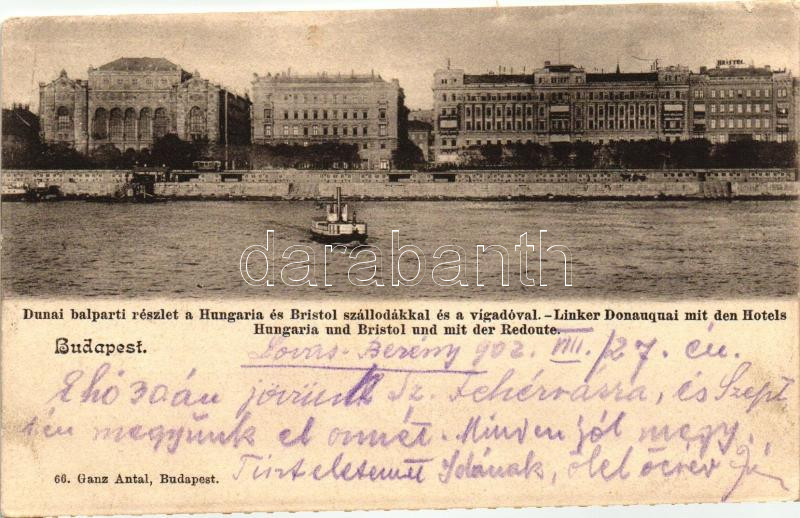 BRISTOL
darabanth
Dunai balparti részlet a Hungaria és Bristol szállodákkal és a vígadóval. – Linker Donauquai mit den Hotels
Hungaria und Bristol und mit der Redoute.
Budapest.
Lovas-Berény 902. VIII. /27. én.
E hó 30án jövünk Sz. Fehérvárra, és Szept
én megyünk el onnét. Minden jól megy.
Tiszteletemet Idának, ölel öcséd
66. Ganz Antal, Budapest.